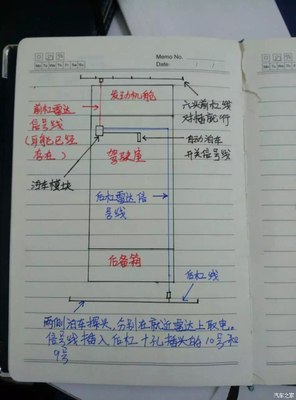 Memo No.
Mo Tu We Th Fr Sa Su
Date / /
发动机舱
前杠雷达
信号线
六头前杠线
对插就行
自动泊车
开关信号线
驾驶室
泊车模块
后杠雷达信
号线
后备箱
后杠线
两侧泊车探头,分别在就近雷达上取电。
信号线插入后杠十孔插头的10号和
9号
汽车之家